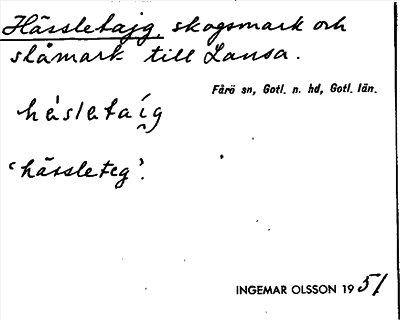 Hässletajg, skogsmark och
slåmark till Lansa.
Fårö sn, Gotl. n. hd, Gotl. län.
hȧ́sletai̯g
‘hässleteg’.
INGEMAR OLSSON 1951